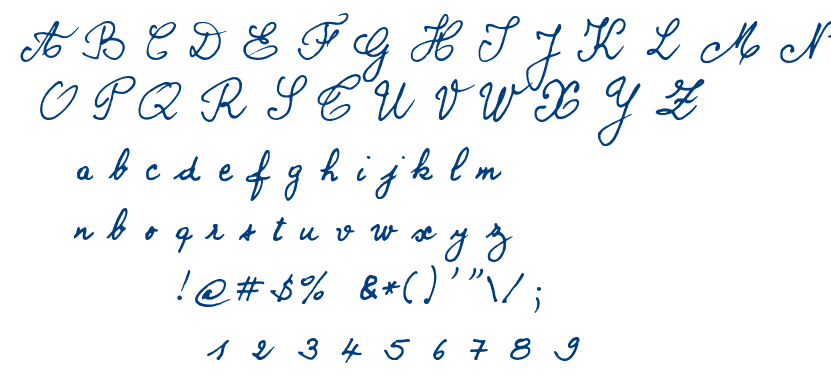 A B C D E F G H I J K L M N
O P Q R S T U V W X Y Z
a b c d e f g h i j k l m
n b o q r s t u v w x y z
!@#$% &*()'"\/;
1 2 3 4 5 6 7 8 9